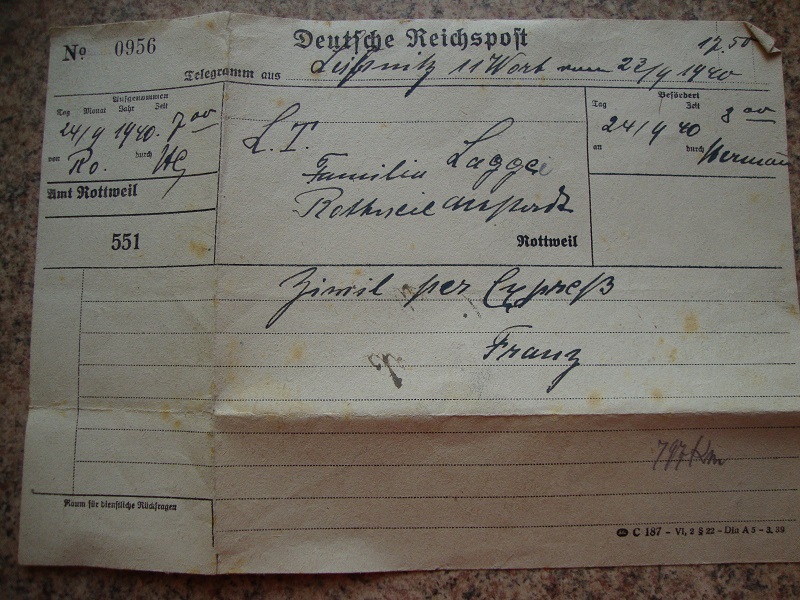 Nº 0956
Deutsche Reichspost
17.50
Telegramm aus 11 Wort vom 23/9 1940
Aufgenommen
Tag Monat Jahr Zeit
24/9 1940. 7 00
von Ro. durch
Amt Rottweil
551
L. T.
Familie
Rottweil
Befördert
Tag Zeit
24/9 40 8 00
an durch
Zivil per Expreß
Franz
797 Km
Raum für dienstliche Rückfragen
C 187 – VI, 2 § 22 – Din A 5 – 3. 39